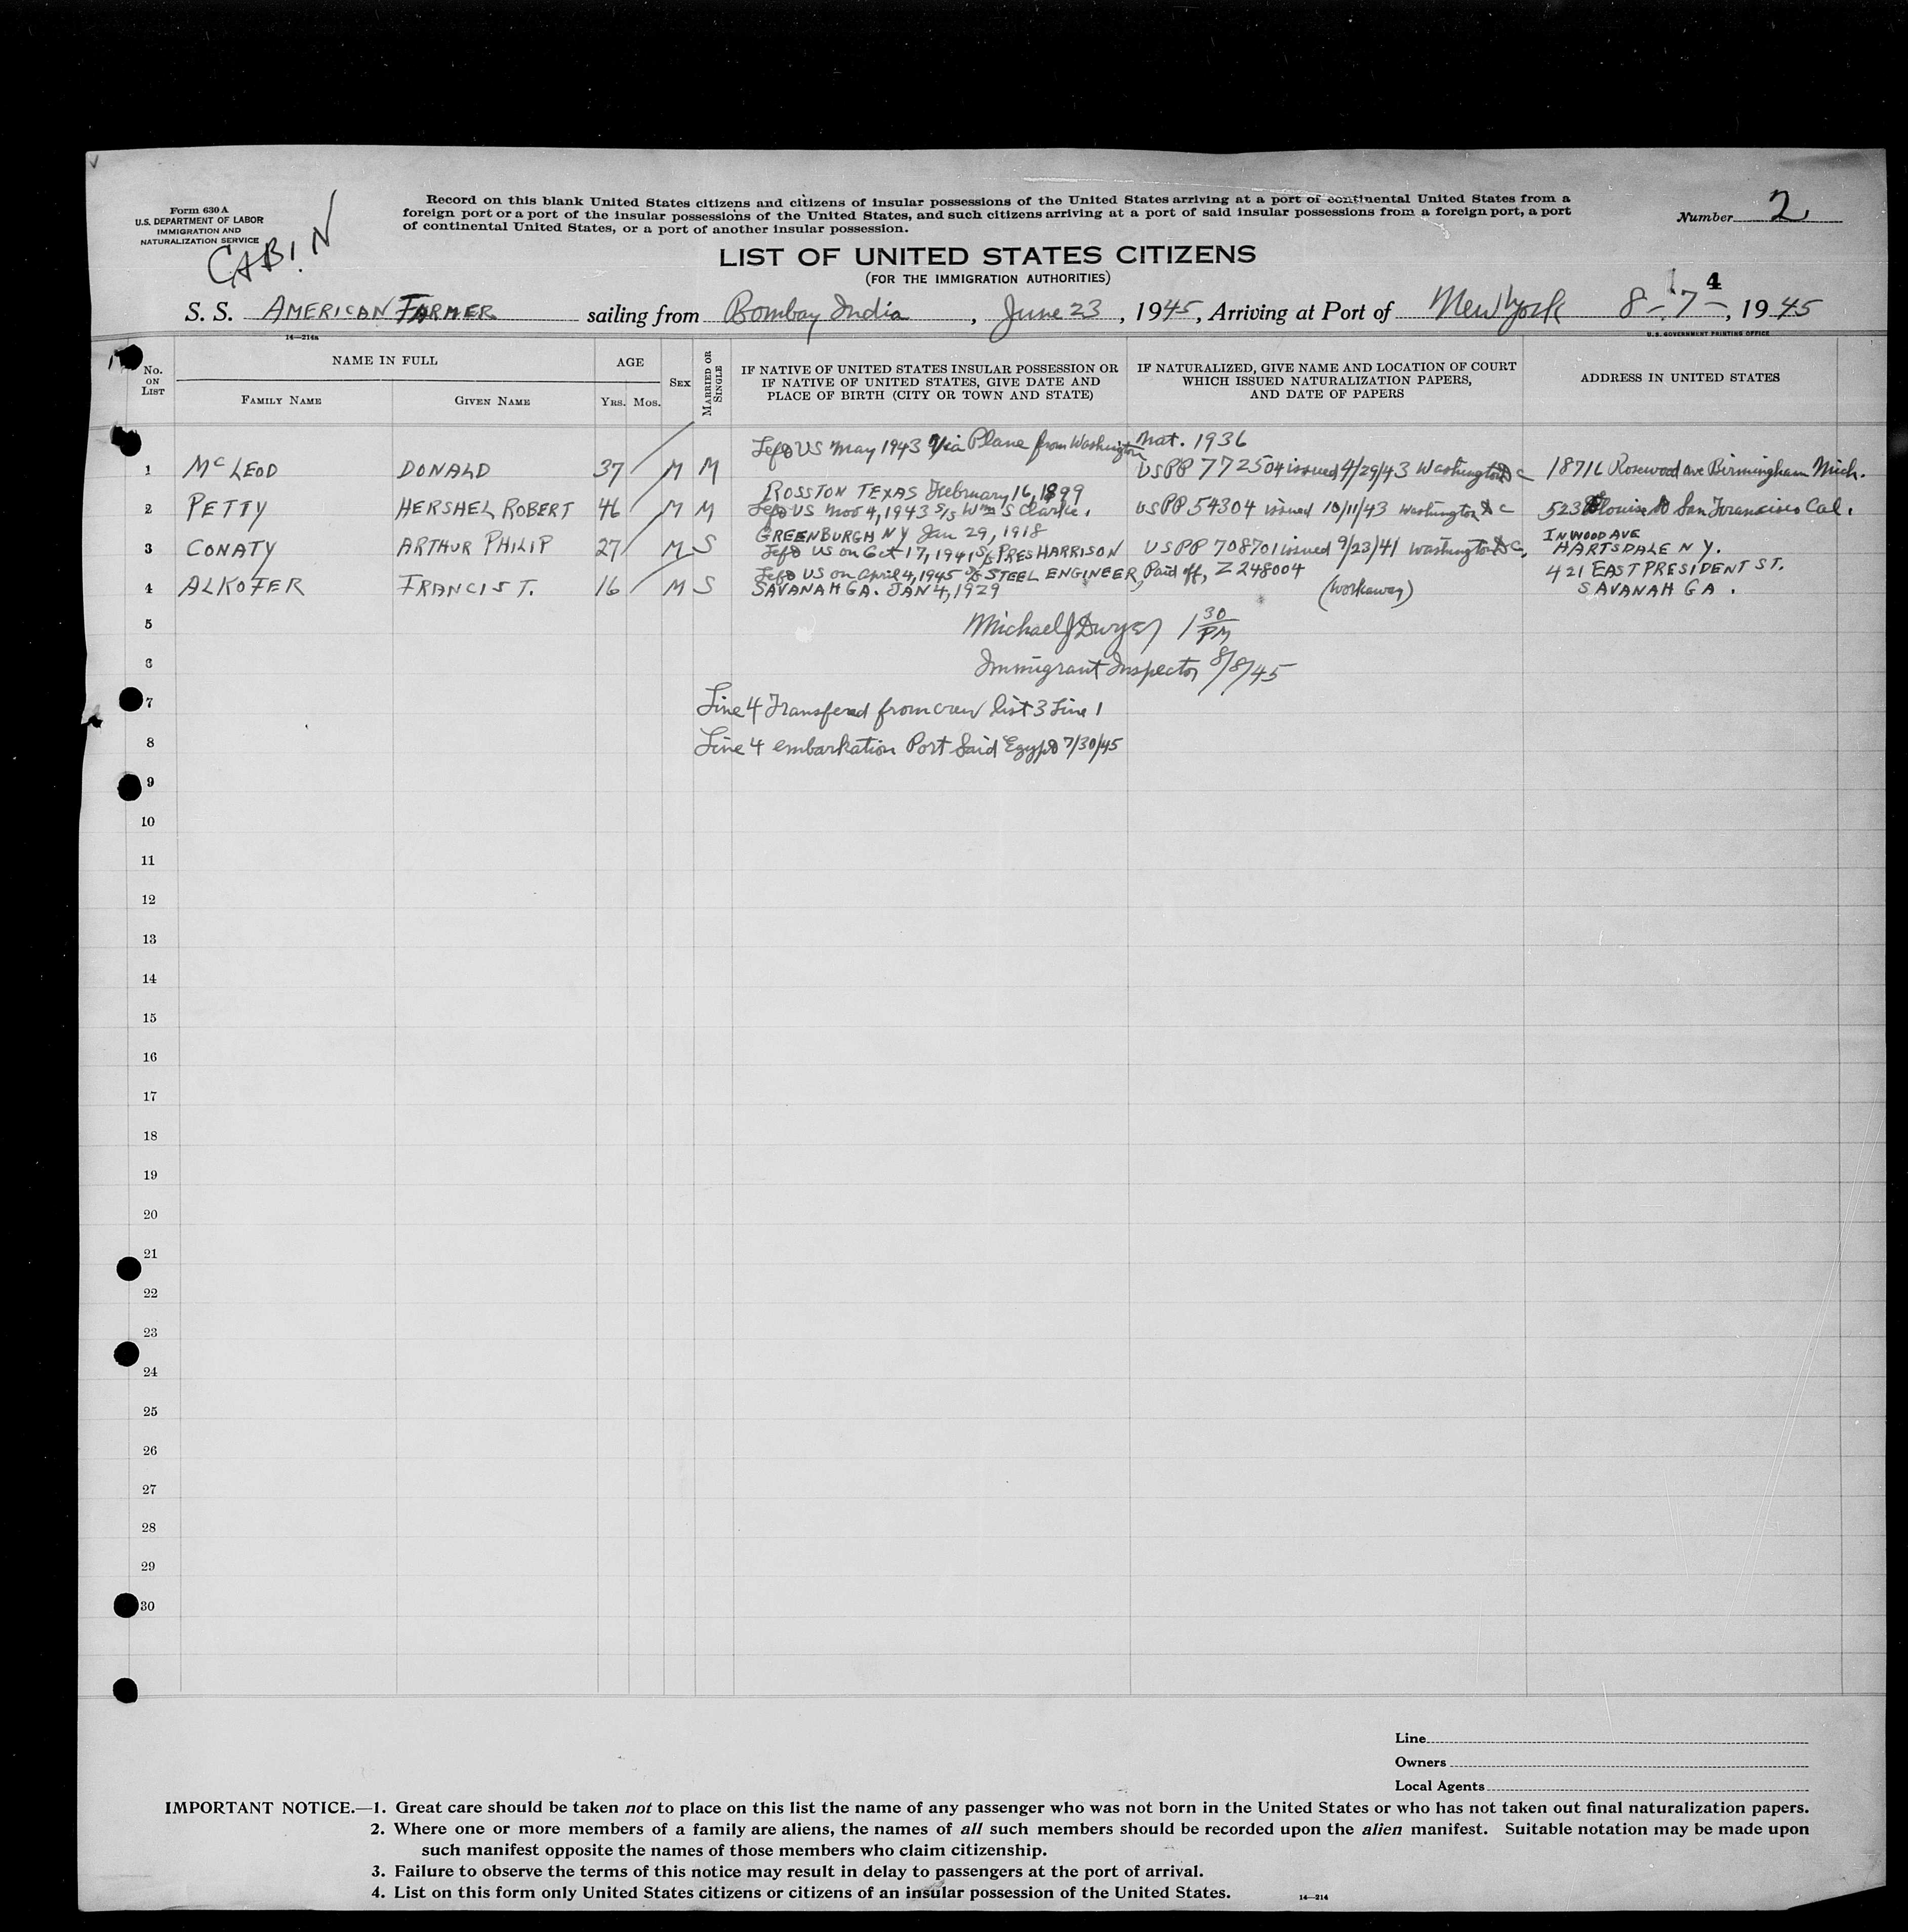 Form 630 A
U.S. DEPARTMENT OF LABOR
IMMIGRATION AND
NATURALIZATION SERVICE
CABIN
Record on this blank United States citizens and citizens of insular possessions of the United States arriving at a port of continental United States from a
foreign port or a port of the insular possessions of the United States, and such citizens arriving at a port of said insular possessions from a foreign port, a port
of continental United States, or a port of another insular possession.
Number 2
LIST OF UNITED STATES CITIZENS
(FOR THE IMMIGRATION AUTHORITIES)
4
S. S. AMERICAN FARMER sailing from Bombay India, June 23, 1945, Arriving at Port of New York 8-7-, 1945
14—214a
U.S. GOVERNMENT PRINTING OFFICE
No. ON LIST
NAME IN FULL
FAMILY NAME
GIVEN NAME
AGE
YRS. MOS.
SEX
MARRIED OR SINGLE
IF NATIVE OF UNITED STATES INSULAR POSSESSION OR
IF NATIVE OF UNITED STATES, GIVE DATE AND
PLACE OF BIRTH (CITY OR TOWN AND STATE)
IF NATURALIZED, GIVE NAME AND LOCATION OF COURT
WHICH ISSUED NATURALIZATION PAPERS,
AND DATE OF PAPERS
ADDRESS IN UNITED STATES
Left US May 1943 Via Plane from Washington Nat. 1936
1 McLEOD DONALD 37 M M USPP 772504 issued 4/29/43 Washington DC 18716 Rosewood ave Birmingham Mich.
ROSSTON TEXAS February 16, 1899
2 PETTY HERSHEL ROBERT 46 M M Left US Nov 4, 1943 S/S Wm S Clarke. USPP 54304 issued 10/11/43 Washington D C 523 Louise St San Francisco Cal.
GREENBURGH NY Jan 29, 1918 INWOOD AVE
3 CONATY ARTHUR PHILIP 27 M S Left US on Oct 17, 1941 S/S PRES HARRISON USPP 708701 issued 9/23/41 Washington DC, HARTSDALE N Y.
Left US on April 4, 1945 S/S STEEL ENGINEER, Paid off, Z 248004 421 EAST PRESIDENT ST.
4 ALKOFER FRANCIS T. 16 M S SAVANAH GA. JAN 4, 1929 (Workaway) SAVANAH GA.
5 Michael J Dwyer 1 30 PM
6 Immigrant Inspector 8/8/45
7 Line 4 Transfered from crew list 3 Line 1
8 Line 4 embarkation Port Said Egypt 7/30/45
9
10
11
12
13
14
15
16
17
18
19
20
21
22
23
24
25
26
27
28
29
30
Line
Owners
Local Agents
IMPORTANT NOTICE.—1. Great care should be taken not to place on this list the name of any passenger who was not born in the United States or who has not taken out final naturalization papers.
2. Where one or more members of a family are aliens, the names of all such members should be recorded upon the alien manifest. Suitable notation may be made upon
such manifest opposite the names of those members who claim citizenship.
3. Failure to observe the terms of this notice may result in delay to passengers at the port of arrival.
4. List on this form only United States citizens or citizens of an insular possession of the United States.
14—214